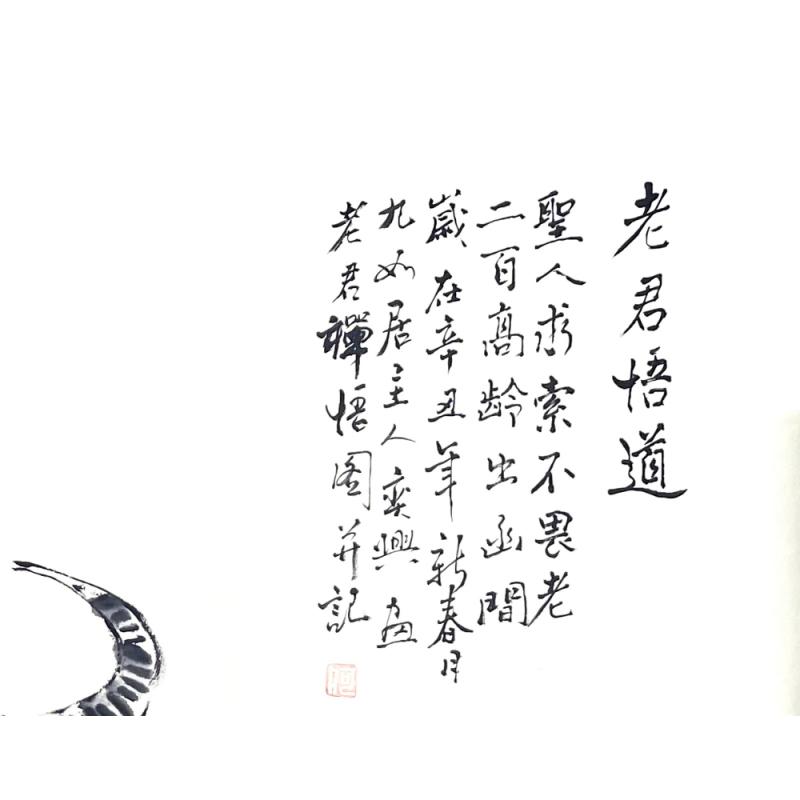 老君悟道
聖人求索不畏老
二百高齡出函間
歲在辛丑年新春月
九如居主人奕興画
老君禪悟图并記